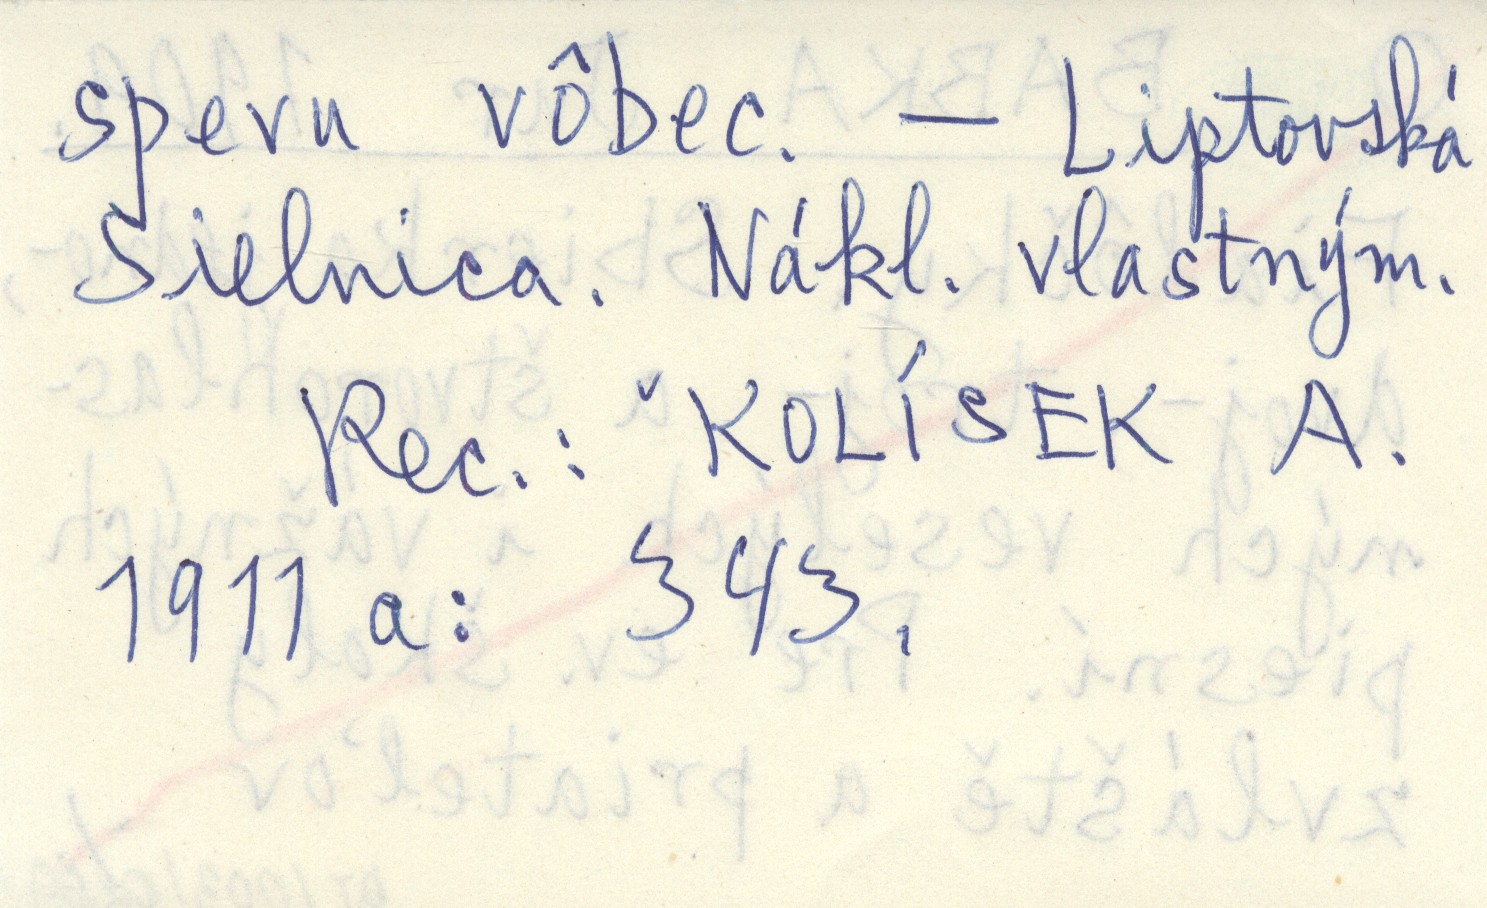 spevu vôbec. — Liptovská
Sielnica. Nákl. vlastným.
Rec.: KOLÍSEK A.
1911 a: 343.